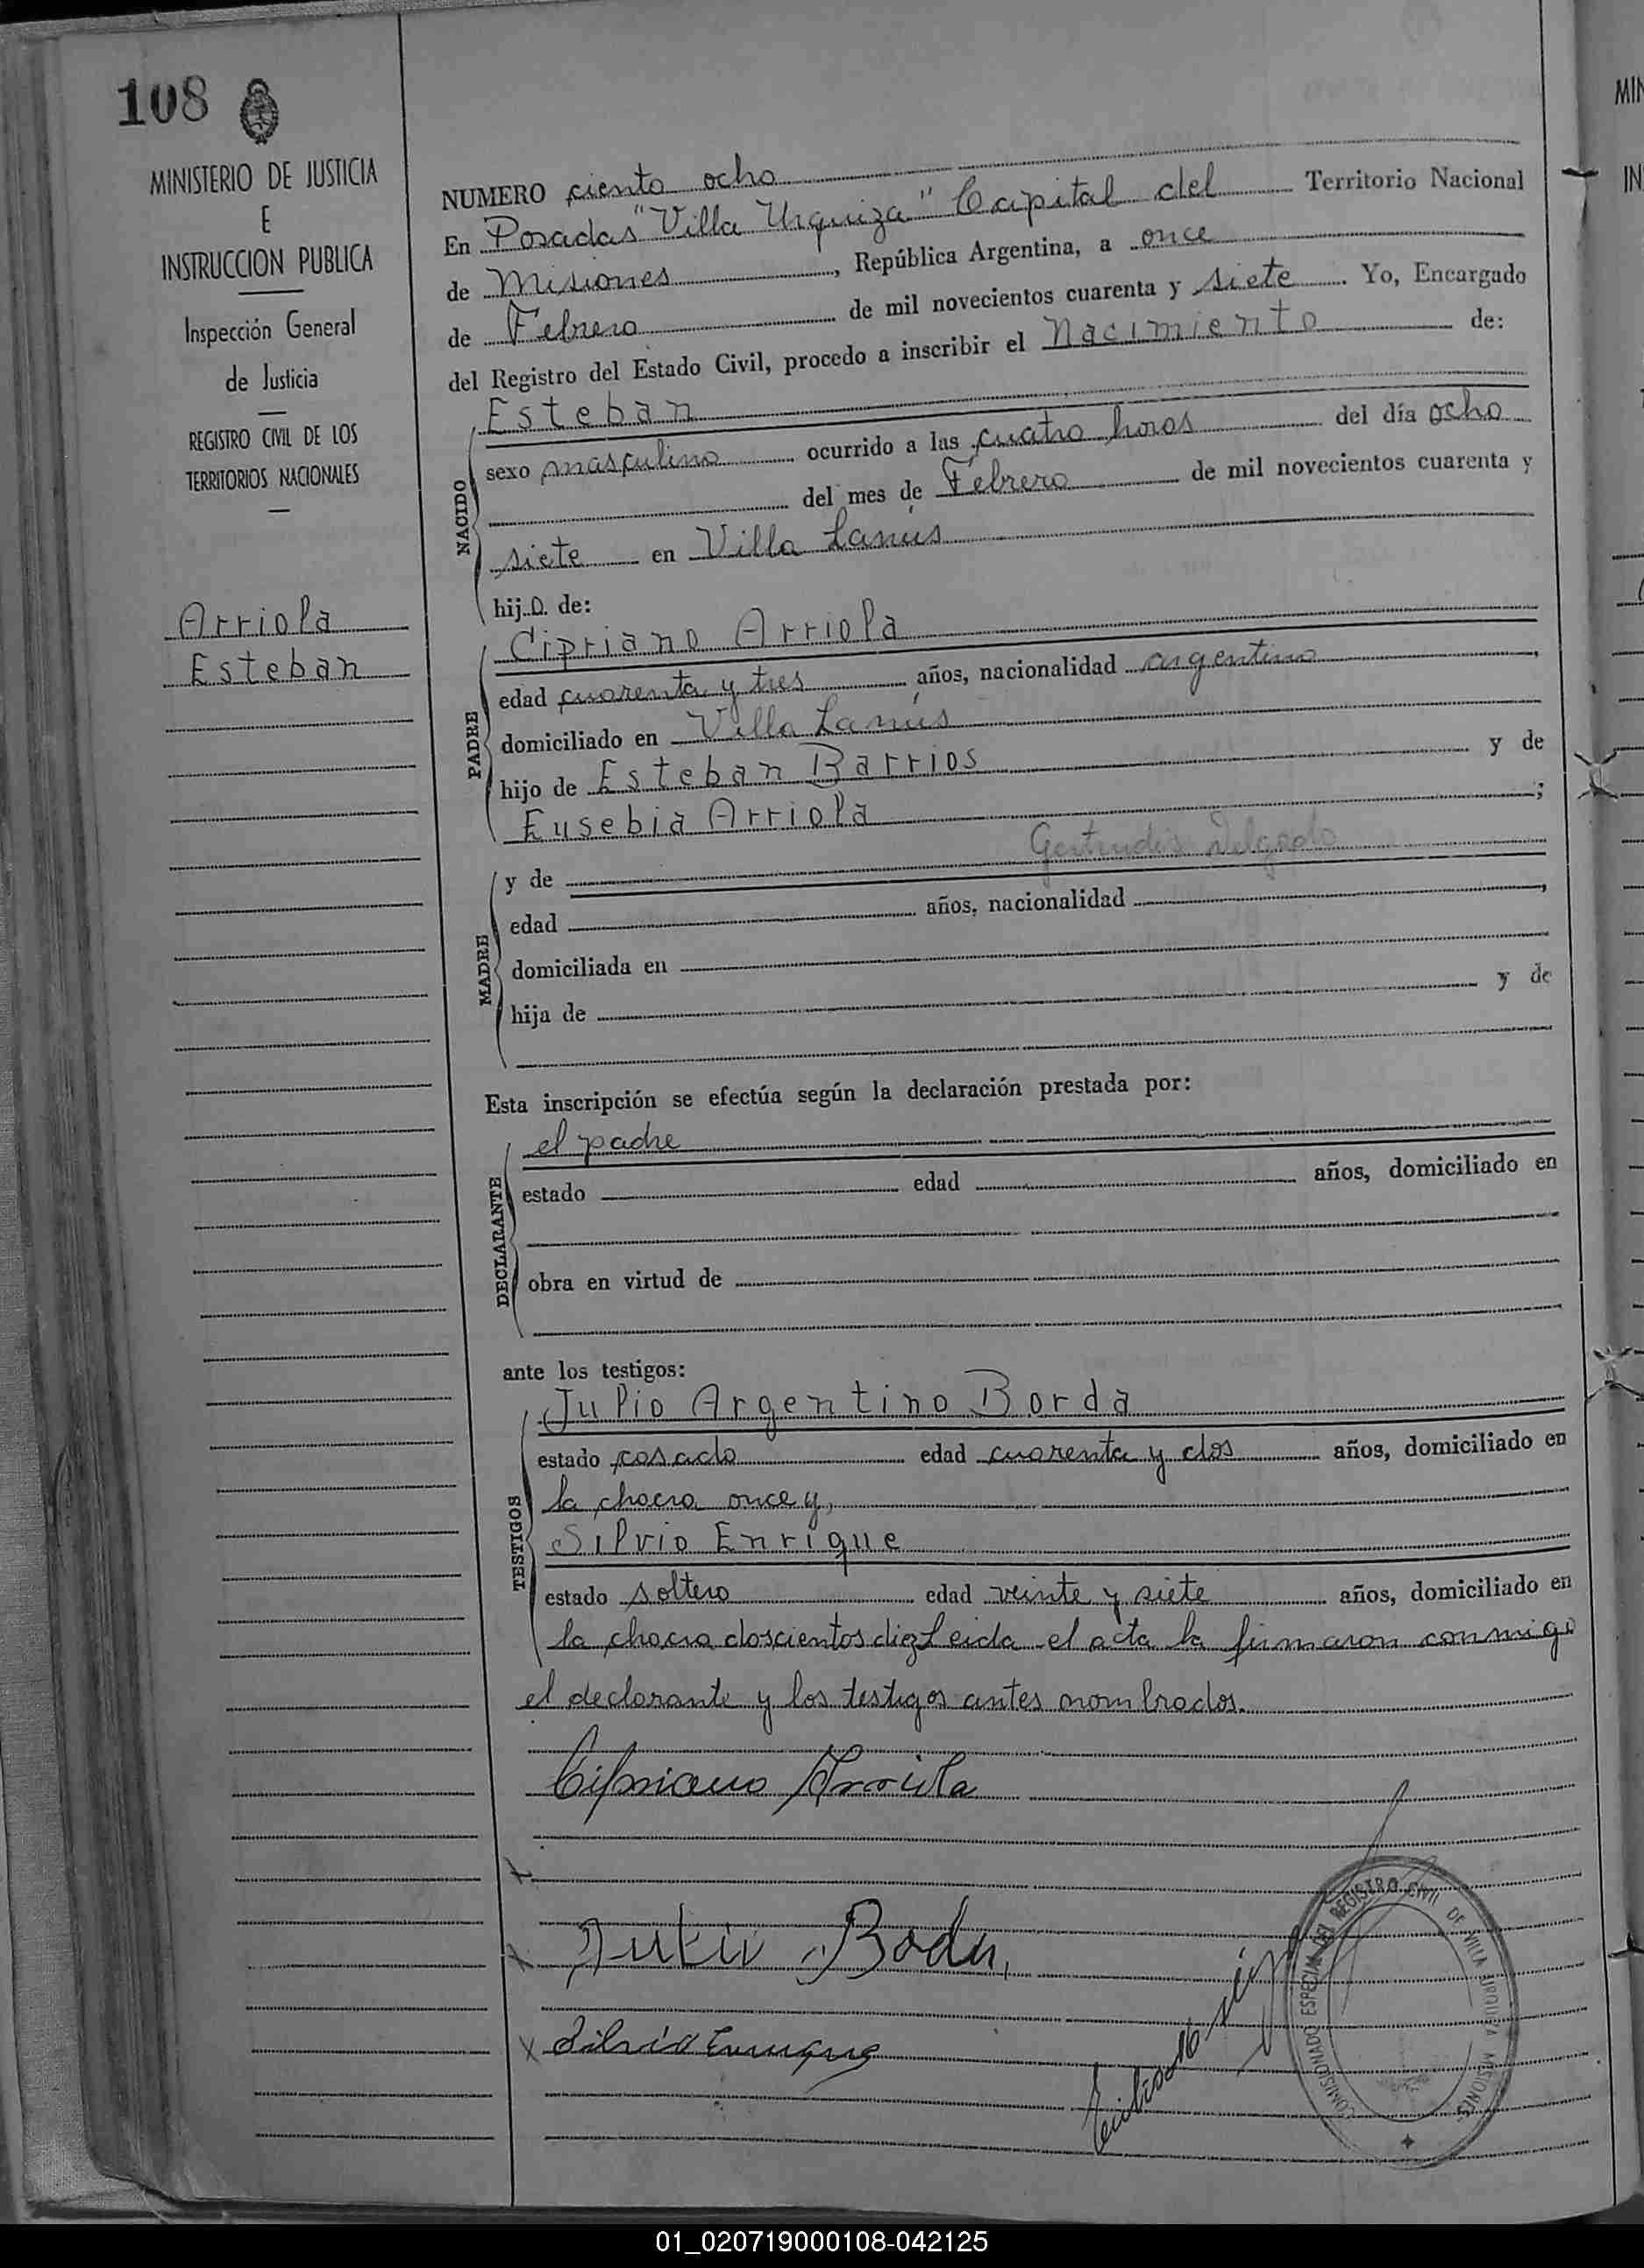 108
MINISTERIO DE JUSTICIA
E
INSTRUCCION PUBLICA
Inspección General
de Justicia
REGISTRO CIVIL DE LOS
TERRITORIOS NACIONALES
Arriola
Esteban
NUMERO ciento ocho
En Posadas "Villa Urquiza" Capital del Territorio Nacional
de Misiones, República Argentina, a once
de Febrero de mil novecientos cuarenta y siete. Yo, Encargado
del Registro del Estado Civil, procedo a inscribir el Nacimiento de:
NACIDO
Esteban
sexo masculino ocurrido a las cuatro horas del día ocho
del mes de Febrero de mil novecientos cuarenta y
siete en Villa Lanús
hijo de:
PADRE
Cipriano Arriola
edad cuarenta y tres años, nacionalidad argentino,
domiciliado en Villa Lanús
hijo de Esteban Barrios y de
Eusebia Arriola;
MADRE
y de Gertrudis Delgado
edad años, nacionalidad,
domiciliada en
hija de y de
Esta inscripción se efectúa según la declaración prestada por:
DECLARANTE
el padre
estado edad años, domiciliado en
obra en virtud de
ante los testigos:
TESTIGOS
Julio Argentino Borda
estado casado edad cuarenta y dos años, domiciliado en
la chacra once y,
Silvio Enrique
estado soltero edad veinte y siete años, domiciliado en
la chacra doscientos diez Leida el acta la firmaron conmigo
el declarante y los testigos antes nombrados.
Cipriano Arriola
Silvio Enrique
COMISIONADO ESPECIAL DEL REGISTRO CIVIL DE VILLA URQUIZA MISIONES
MIN
IN
01_020719000108-042125